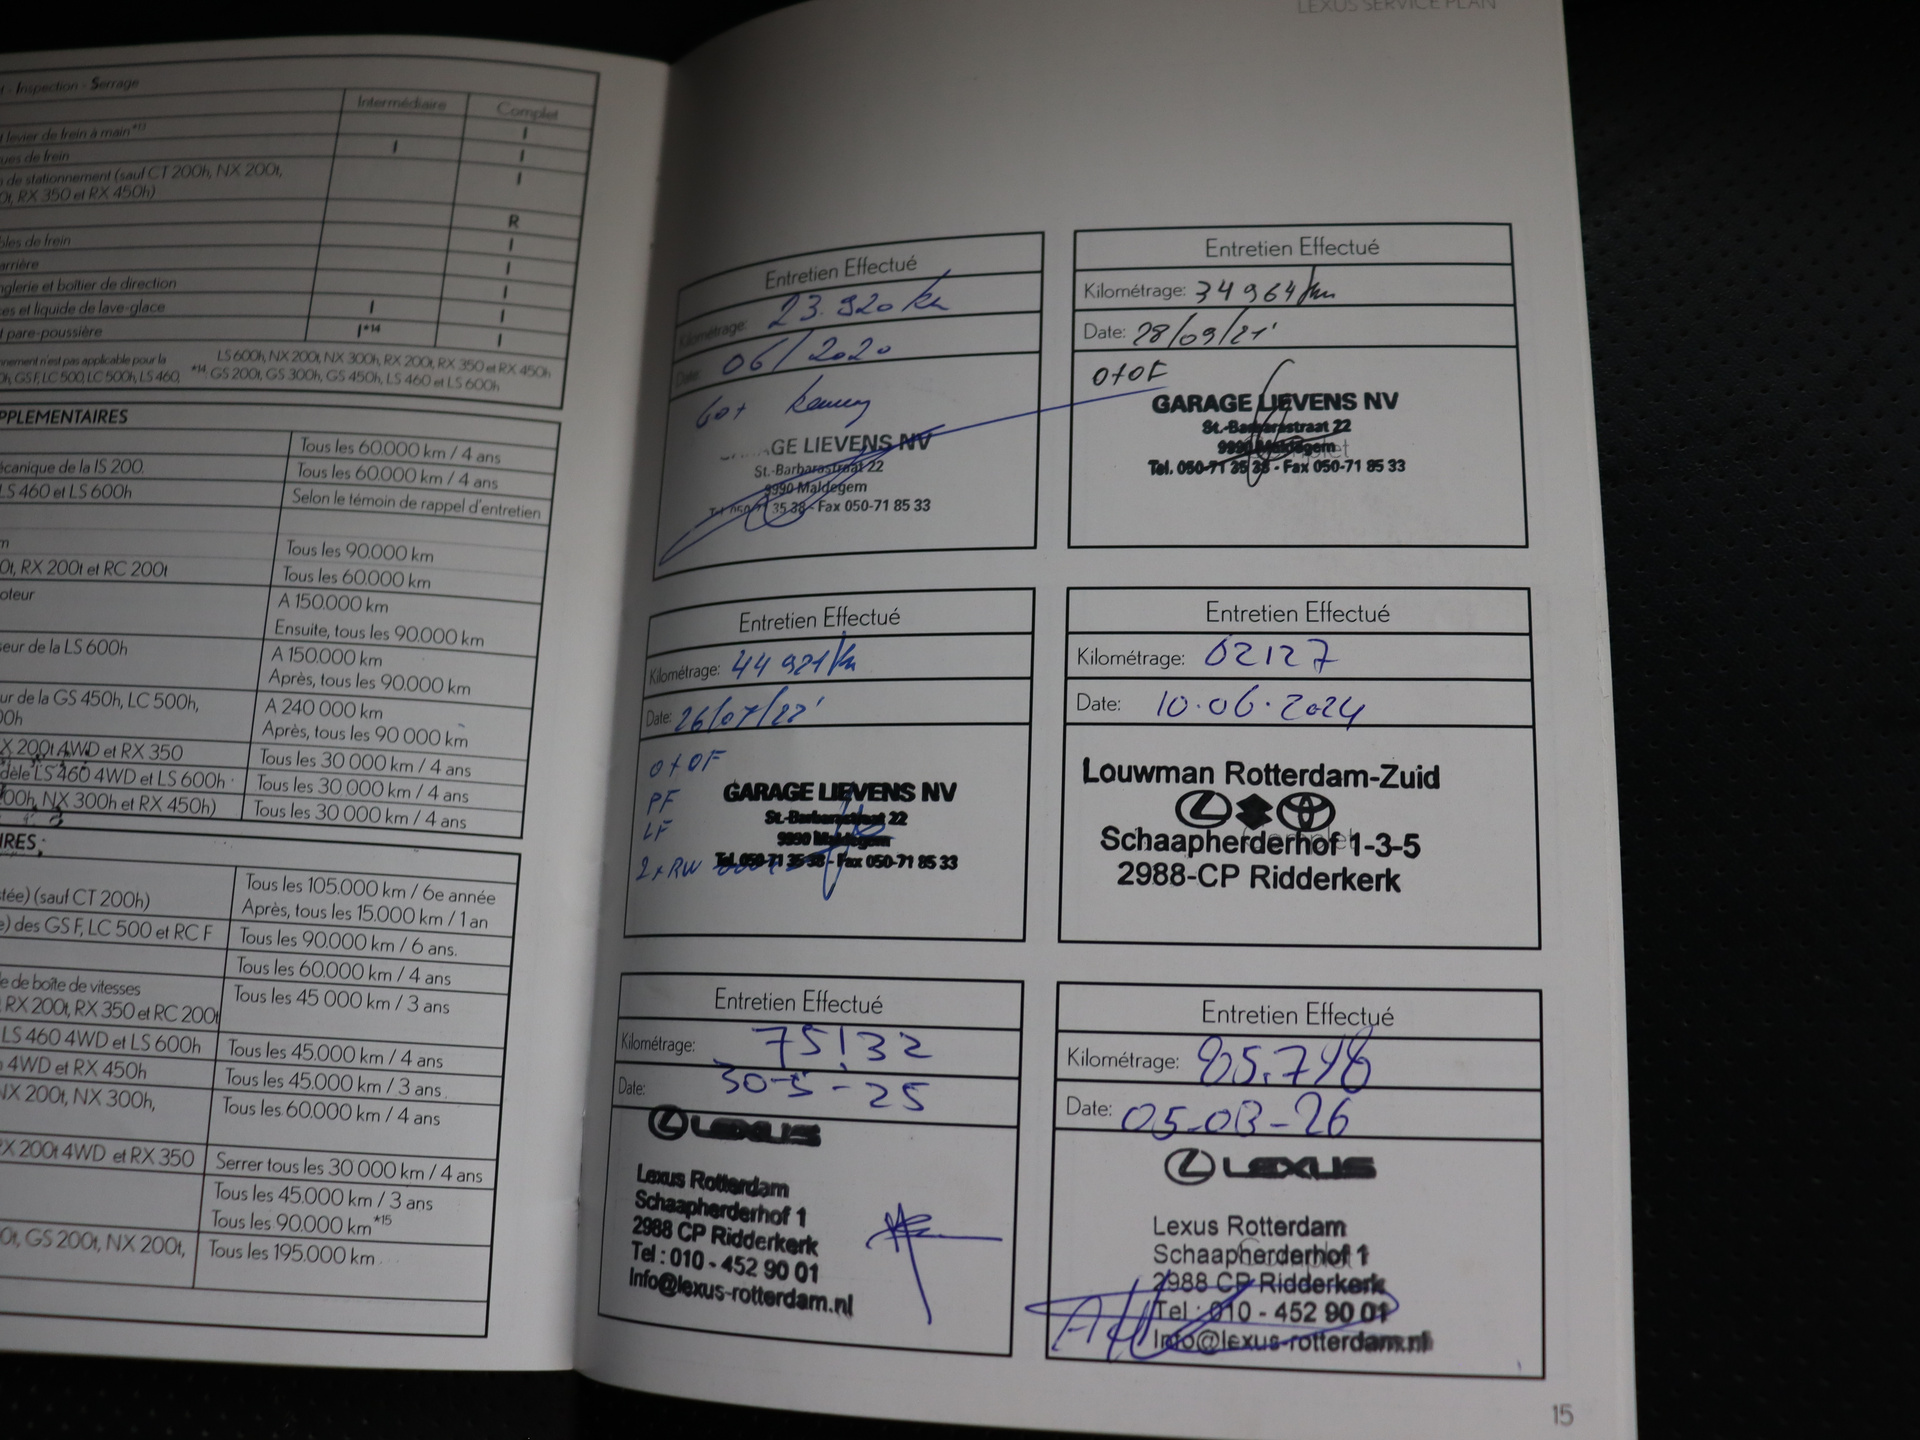 LEXUS SERVICE PLAN
t - Inspection - Serrage
Intermédiaire Complet
levier de frein à main*13 I
ues de frein I I
de stationnement (sauf CT 200h, NX 200t, I
0t, RX 350 et RX 450h)
R
bles de frein I
arrière I
nglerie et boîtier de direction I
es et liquide de lave-glace I I
t pare-poussière I*14 I
nnement n'est pas applicable pour la
0h, GS F, LC 500, LC 500h, LS 460,
LS 600h, NX 200t, NX 300h, RX 200t, RX 350 et RX 450h
*14: GS 200t, GS 300h, GS 450h, LS 460 et LS 600h
PPLEMENTAIRES
Tous les 60.000 km / 4 ans
écanique de la IS 200. Tous les 60.000 km / 4 ans
LS 460 et LS 600h Selon le témoin de rappel d'entretien
m Tous les 90.000 km
0t, RX 200t et RC 200t Tous les 60.000 km
oteur A 150.000 km
Ensuite, tous les 90.000 km
seur de la LS 600h A 150.000 km
Après, tous les 90.000 km
ur de la GS 450h, LC 500h, A 240 000 km
00h Après, tous les 90 000 km
X 200t 4WD et RX 350 Tous les 30 000 km / 4 ans
dèle LS 460 4WD et LS 600h Tous les 30.000 km / 4 ans
00h, NX 300h et RX 450h) Tous les 30 000 km / 4 ans
IRES:
Tous les 105.000 km / 6e année
tée) (sauf CT 200h) Après, tous les 15.000 km / 1 an
e) des GS F, LC 500 et RC F Tous les 90.000 km / 6 ans.
Tous les 60.000 km / 4 ans
e de boîte de vitesses Tous les 45 000 km / 3 ans
RX 200t, RX 350 et RC 200t
LS 460 4WD et LS 600h Tous les 45.000 km / 4 ans
4WD et RX 450h Tous les 45.000 km / 3 ans
NX 200t, NX 300h, Tous les 60.000 km / 4 ans
X 200t 4WD et RX 350 Serrer tous les 30 000 km / 4 ans
Tous les 45.000 km / 3 ans
Tous les 90.000 km*15
0t, GS 200t, NX 200t, Tous les 195.000 km
Entretien Effectué
Kilométrage: 23.920 km
Date: 06/2020
GE LIEVENS NV
St.-Barbarastraat 22
9990 Maldegem
35 38 - Fax 050-71 85 33
Entretien Effectué
Kilométrage: 34 964 km
Date: 28/09/21'
O+OF
GARAGE LIEVENS NV
St.-Barbarastraat 22
9990 Maldegem
Tel. 050-71 35 38 - Fax 050-71 85 33
Entretien Effectué
Kilométrage: 44 921 km
Date: 26/07/22'
O+OF
PF
LF
2xRW
GARAGE LIEVENS NV
St.-Barbarastraat 22
9990 Maldegem
Tel. 050-71 35 38 - Fax 050-71 85 33
Entretien Effectué
Kilométrage: 62127
Date: 10.06.2024
Louwman Rotterdam-Zuid
Schaapherderhof 1-3-5
2988-CP Ridderkerk
Entretien Effectué
Kilométrage: 75132
Date: 30-5-25
LEXUS
Lexus Rotterdam
Schaapherderhof 1
2988 CP Ridderkerk
Tel : 010 - 452 90 01
Info@lexus-rotterdam.nl
Entretien Effectué
Kilométrage: 85.798
Date: 05-03-26
LEXUS
Lexus Rotterdam
Schaapherderhof 1
2988 CP Ridderkerk
Tel : 010 - 452 90 01
Info@lexus-rotterdam.nl
15